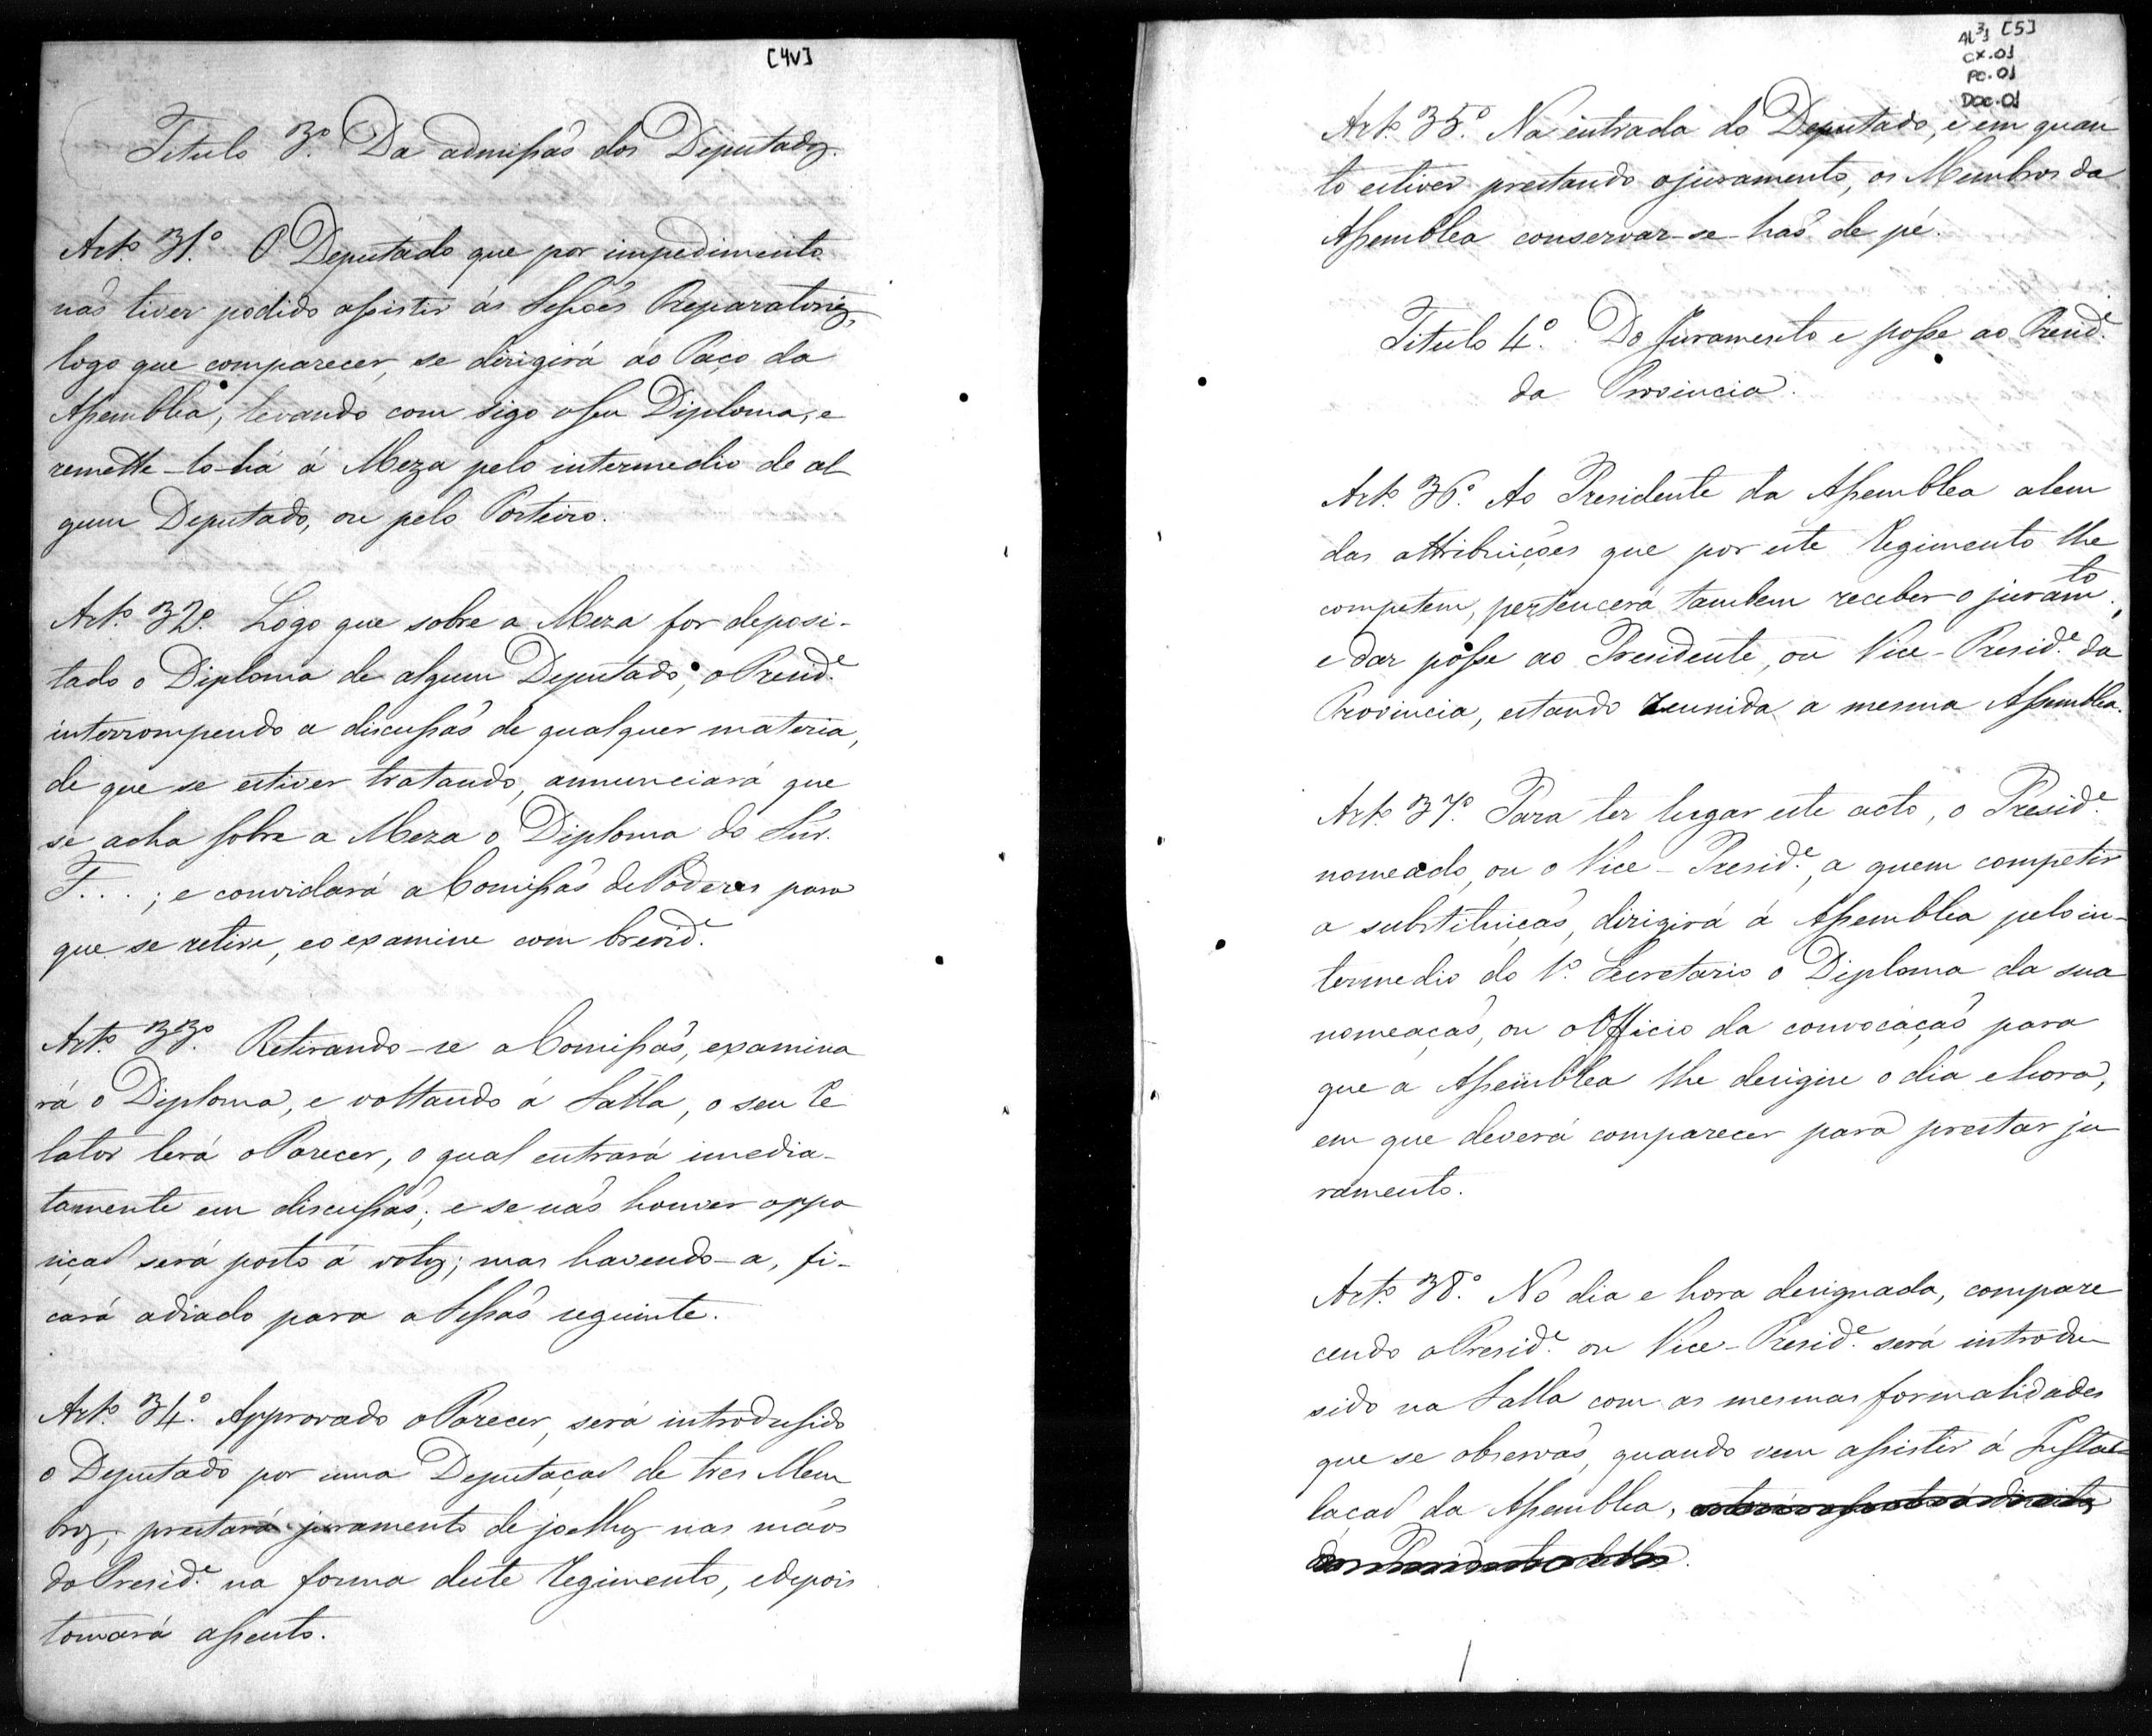 [4v]
Titulo 3º. Da admissaõ dos Deputados.
Artº. 31º. O Deputado que por impedimento
naõ tiver podido assistir ás Sessoẽs Preparatorias,
logo que comparecer, se dirigirá ao Paço da
Assemblea, levando com sigo o seu Diploma, e
remette-lo-há á Meza pelo intermedio de al
gum Deputado, ou pelo Porteiro.
Artº. 32º. Logo que sobre a Meza for deposi-
tado o Diploma de algum Deputado, o Presid.e
interrompendo a discussaõ de qualquer materia,
de que se estiver tratando, annunciará que
se acha sobre a Meza o Diploma do Snr.
F...; e convidará a Comissaõ de Poderes para
que se retire, e o examine com brevid.e
Artº. 33º. Retirando-se a Comissaõ, examina
rá o Diploma, e voltando á Salla, o seu Re
lator lerá o Parecer, o qual entrará imedia-
tamente em discussaõ; e se naõ houver oppo
siçaõ será posto á votos; mas havendo-a, fi-
cará adiado para a Sessaõ seguinte.
Artº. 34º. Approvado o Parecer, será introdusido
o Deputado por uma Deputaçaõ de tres Mem
bros, prestará juramento de joelhos nas maõs
do Presid.e na forma deste Regimento, e depois
tomará assento.
AL31 [5]
CX.01
PC.01
DOC.01
Artº. 35º. Na entrada do Deputado, e em quan
to estiver prestando o juramento, os Membros da
Assemblea conservar-se-haõ de pé.
Titulo 4º. Do Juramento e posse ao Presid.e
da Provincia.
Artº. 36º. Ao Presidente da Assemblea alem
das attribuiçoẽs que por este Regimento lhe
competem, pertencerá tambem receber o juramto,
e dar posse ao Presidente, ou Vice-Presid.e da
Provincia, estando reunida a mesma Assemblea.
Artº. 37º. Para ter lugar este acto, o Presid.e
nomeado, ou o Vice-Presid.e, a quem competir
a substituiçaõ, dirigirá á Assemblea pelo in-
termedio do 1º. Secretario o Diploma da sua
nomeaçaõ, ou o Officio da convocaçaõ para
que a Assemblea lhe designe o dia e hora,
em que deverá comparecer para prestar ju
ramento.
Artº. 38º. No dia e hora designada, compare
cendo o Presid.e ou Vice-Presid.e será introdu
sido na Salla com as mesmas formalidades
que se observaõ, quando vem assistir á Instal
laçaõ da Assemblea,